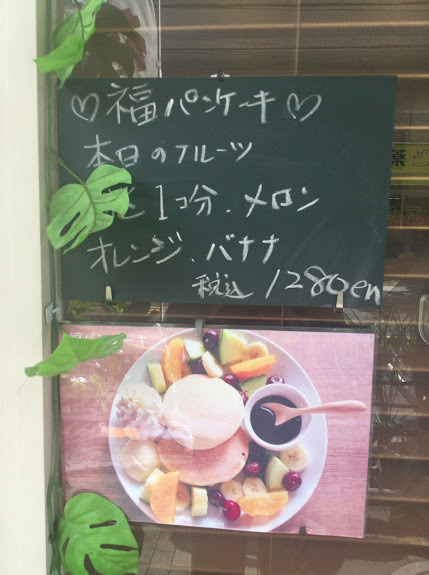 ♡福パンケーキ♡
本日のフルーツ
1コ分、メロン
オレンジ、バナナ
税込 1280en
薬